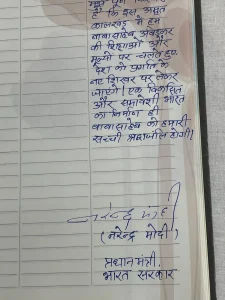 है कि इस अमृत
कालखंड में हम
बाबासाहेब अंबेडकर
की शिक्षाओं और
मूल्यों पर चलते हुए
देश को प्रगति के
नए शिखर पर लेकर
जाएंगे। एक विकसित
और समावेशी भारत
का निर्माण ही
बाबासाहेब को हमारी
सच्ची श्रद्धांजलि होगी।
नरेन्द्र मोदी
(नरेन्द्र मोदी)
प्रधानमंत्री,
भारत सरकार